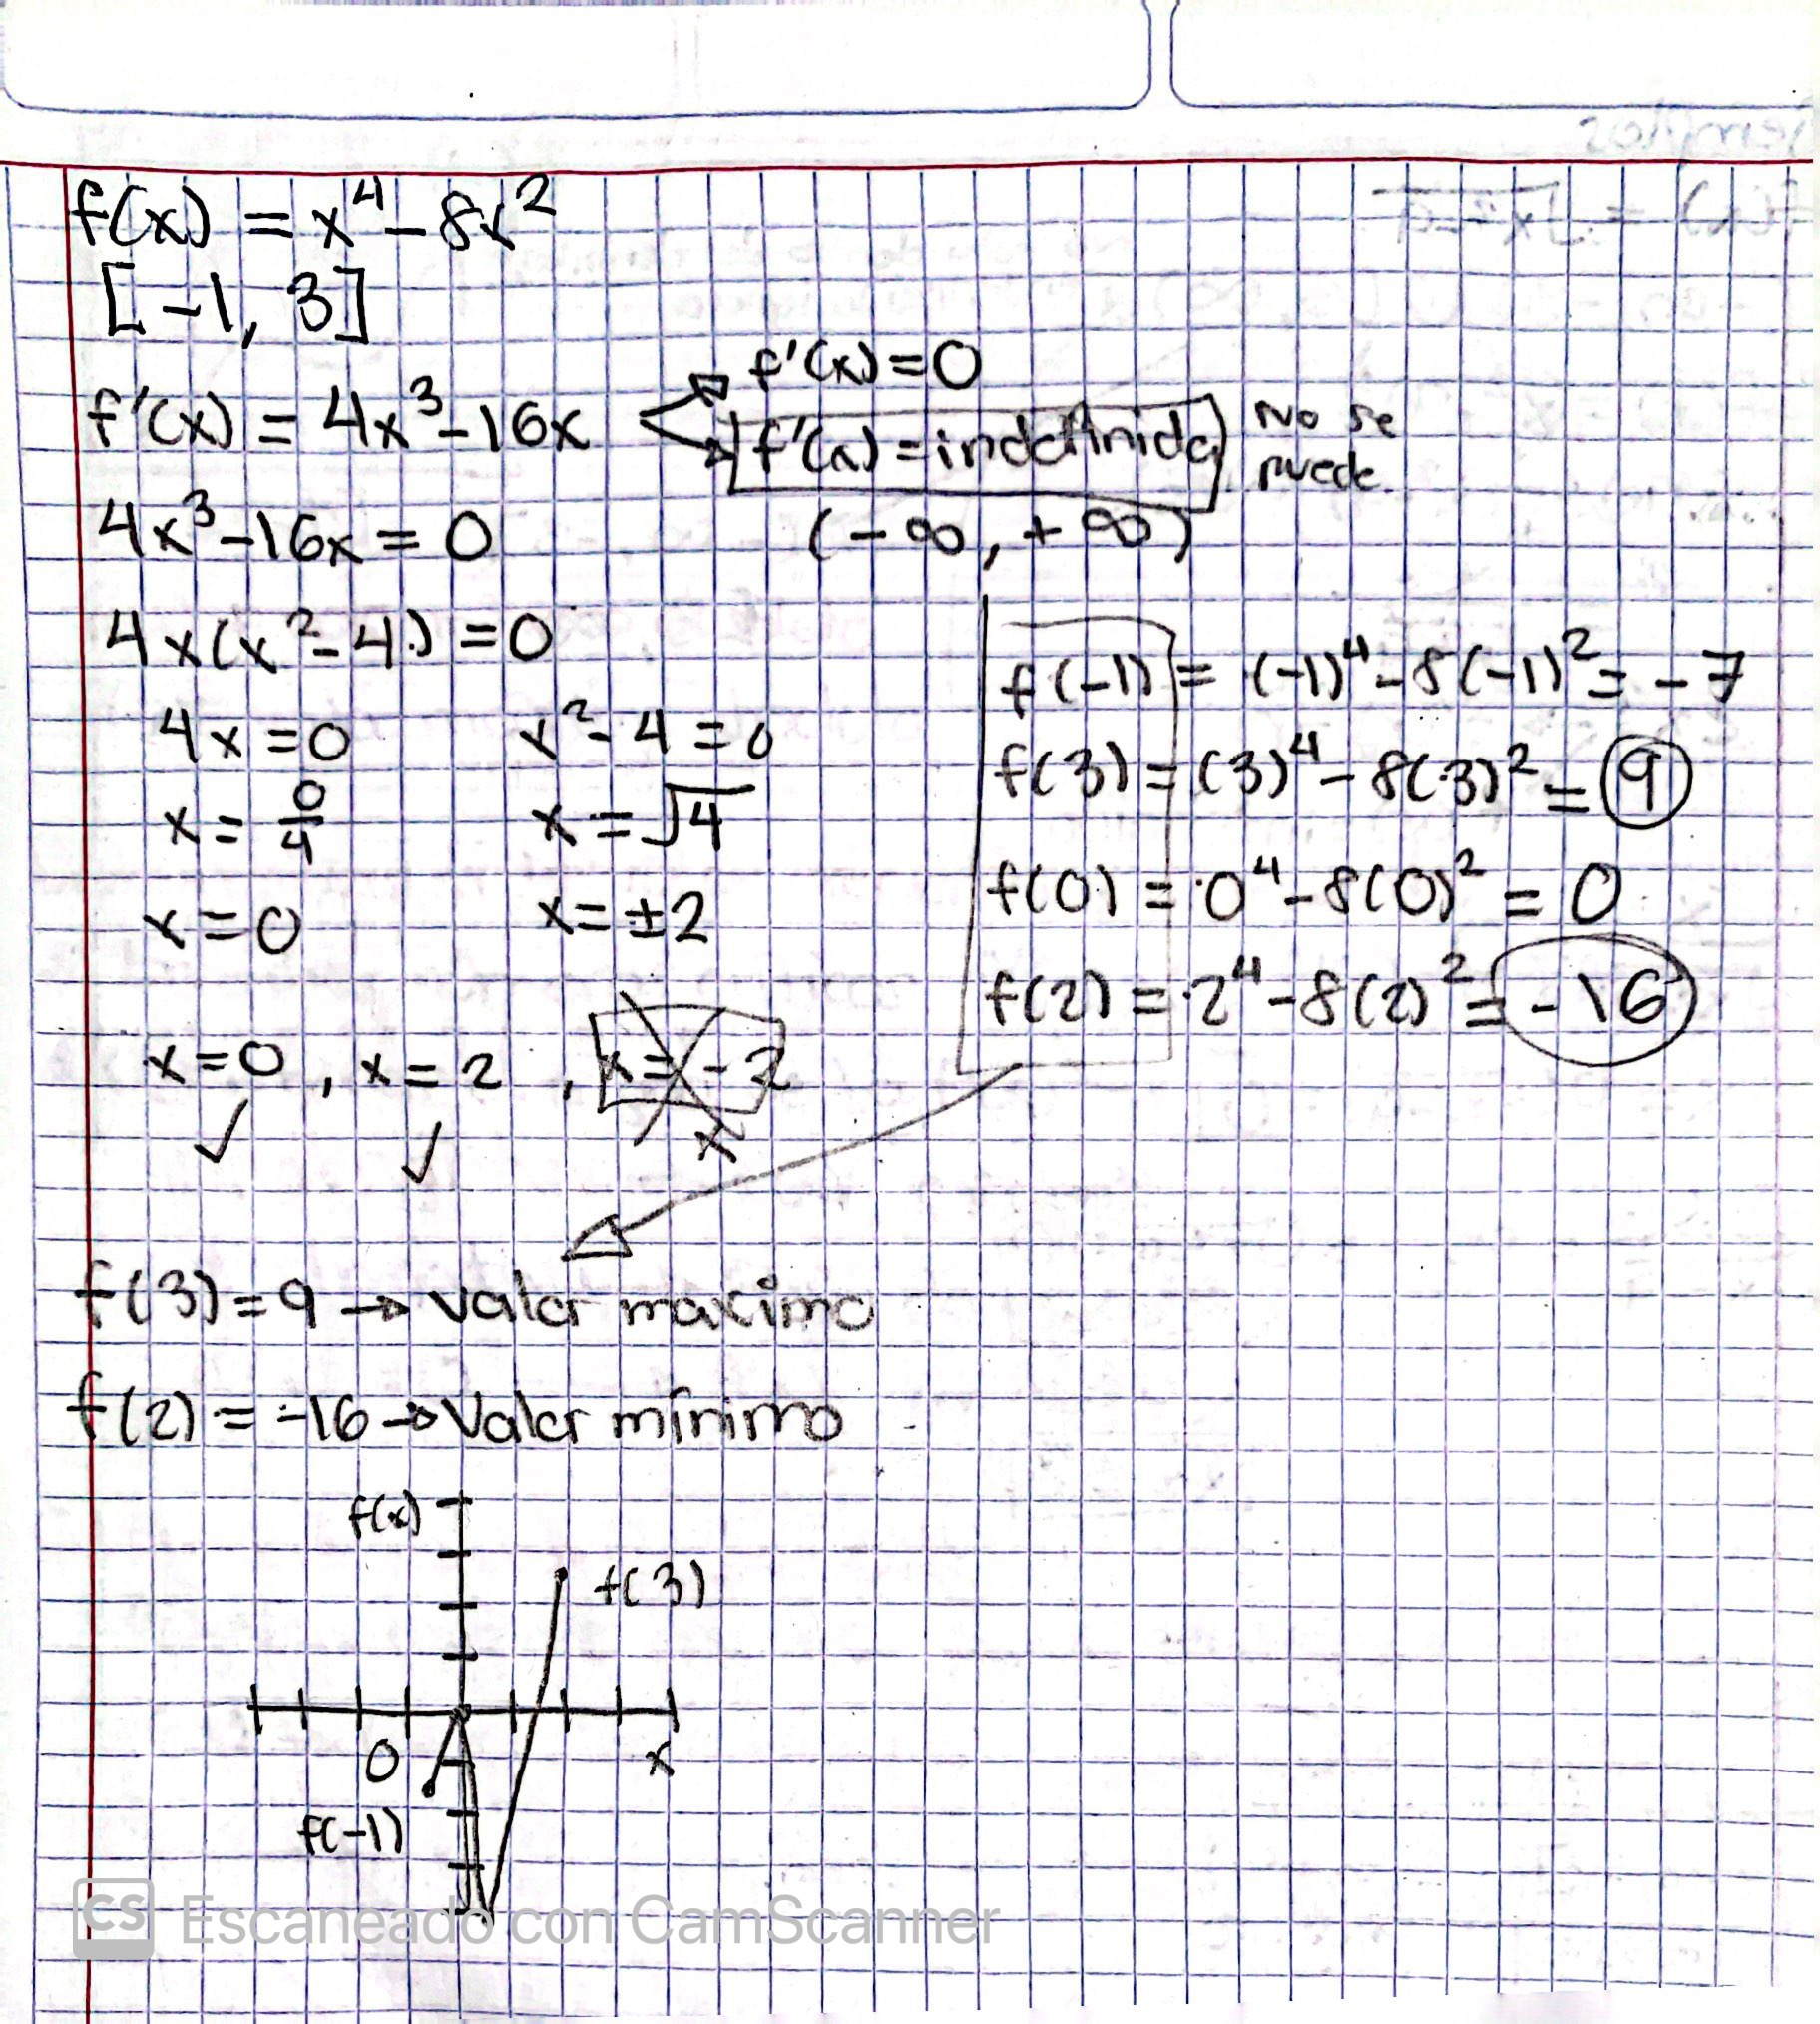 f(x) = x⁴ - 8x²
[-1, 3]
f'(x) = 4x³ - 16x
f'(x) = 0
f'(x) = indefinida
No se
puede
(-∞, +∞)
4x³ - 16x = 0
4x(x² - 4) = 0
4x = 0
x² - 4 = 0
x = 0/4
x = √4
x = 0
x = ±2
x = 0, x = 2, x = -2
x
f(-1) = (-1)⁴ - 8(-1)² = -7
f(3) = (3)⁴ - 8(3)² = 9
f(0) = 0⁴ - 8(0)² = 0
f(2) = 2⁴ - 8(2)² = -16
f(3) = 9 → valor maximo
f(2) = -16 → Valor mínimo
f(x)
f(3)
0
x
f(-1)
CS Escaneado con CamScanner